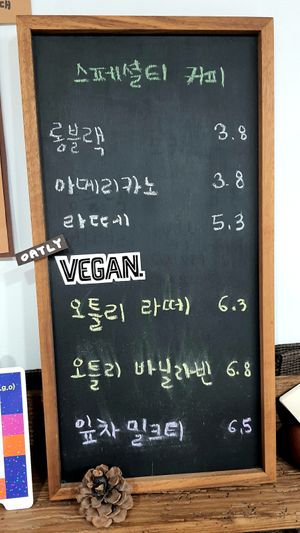 스페셜티 커피
롱블랙 3.8
아메리카노 3.8
라떼 5.3
OATLY
VEGAN.
오틀리 라떼 6.3
오틀리 바닐라빈 6.8
잎차 밀크티 6.5